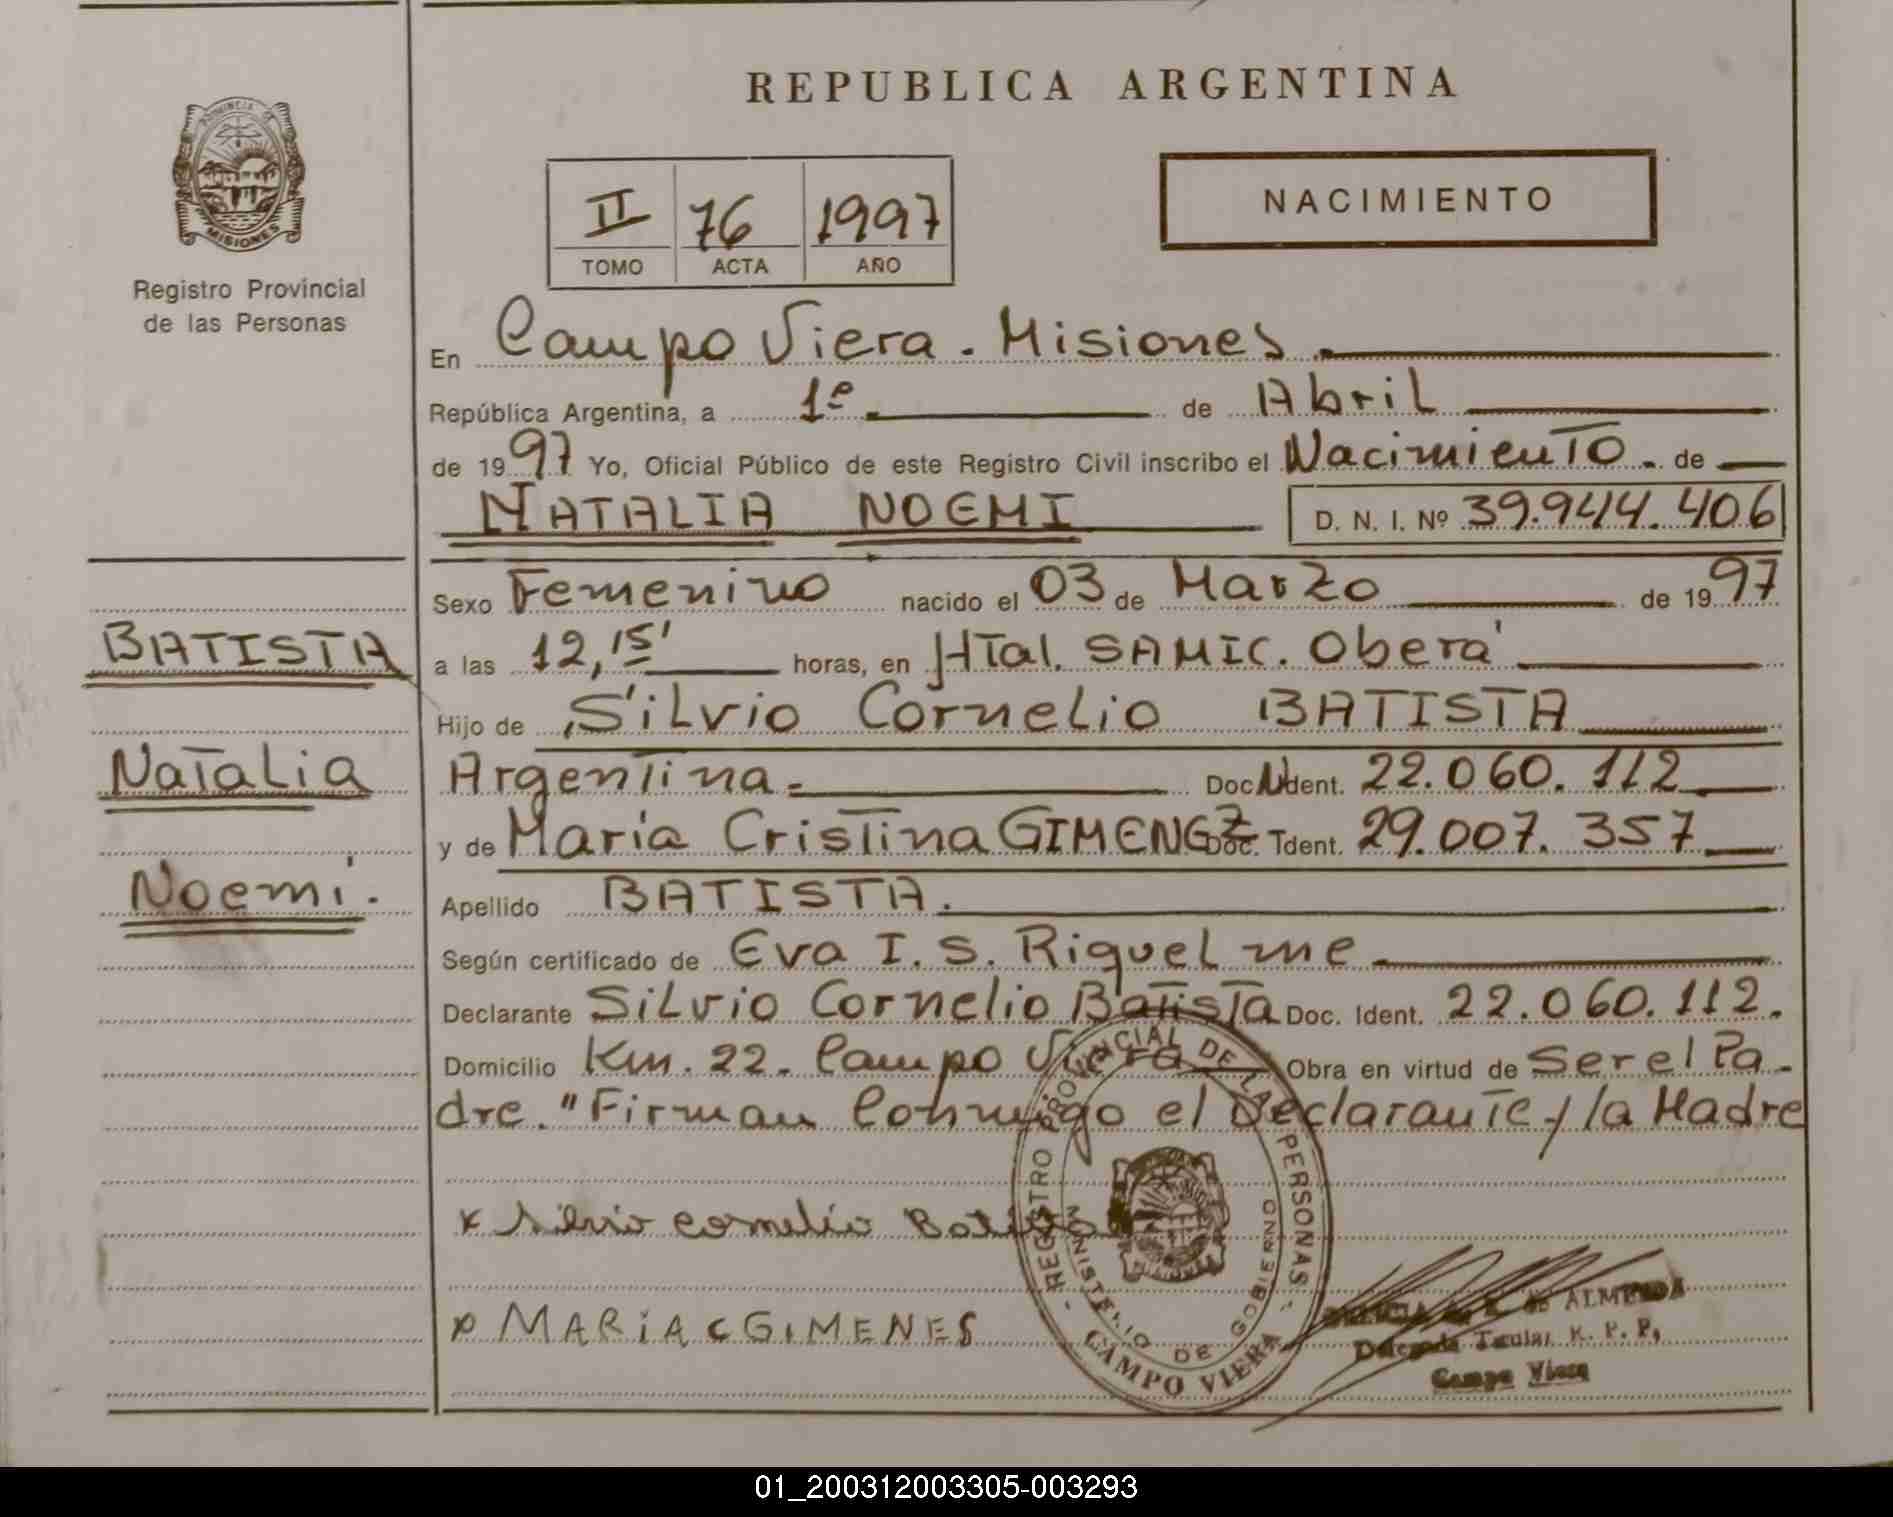 REPUBLICA ARGENTINA
PROVINCIA DE
MISIONES
Registro Provincial
de las Personas
II 76 1997
TOMO ACTA AÑO
NACIMIENTO
En Campo Viera. Misiones.
República Argentina, a 1º de Abril
de 1997 Yo, Oficial Público de este Registro Civil inscribo el Nacimiento. de
NATALIA NOEMI D. N. I. Nº 39.944.406
Sexo Femenino nacido el 03 de Marzo de 1997
a las 12,15' horas, en Htal. SAMIC. Oberá
Hijo de Silvio Cornelio BATISTA
Argentina. Doc. Ident. 22.060.112
y de María Cristina GIMENEZ Doc. Ident. 29.007.357
Apellido BATISTA.
Según certificado de Eva I. S. Riquelme
Declarante Silvio Cornelio Batista Doc. Ident. 22.060.112.
Domicilio Km. 22. Campo Viera Obra en virtud de Ser el Pa-
dre. "Firman Conmigo el Declarante y la Madre
x Silvio Cornelio Batista
x MARIA C GIMENES
BATISTA
Natalia
Noemí.
REGISTRO PROVINCIAL DE LAS PERSONAS
MINISTERIO DE GOBIERNO
CAMPO VIERA
de ALMEIDA
Delegada Titular R. P. P.
Campo Viera
01_200312003305-003293